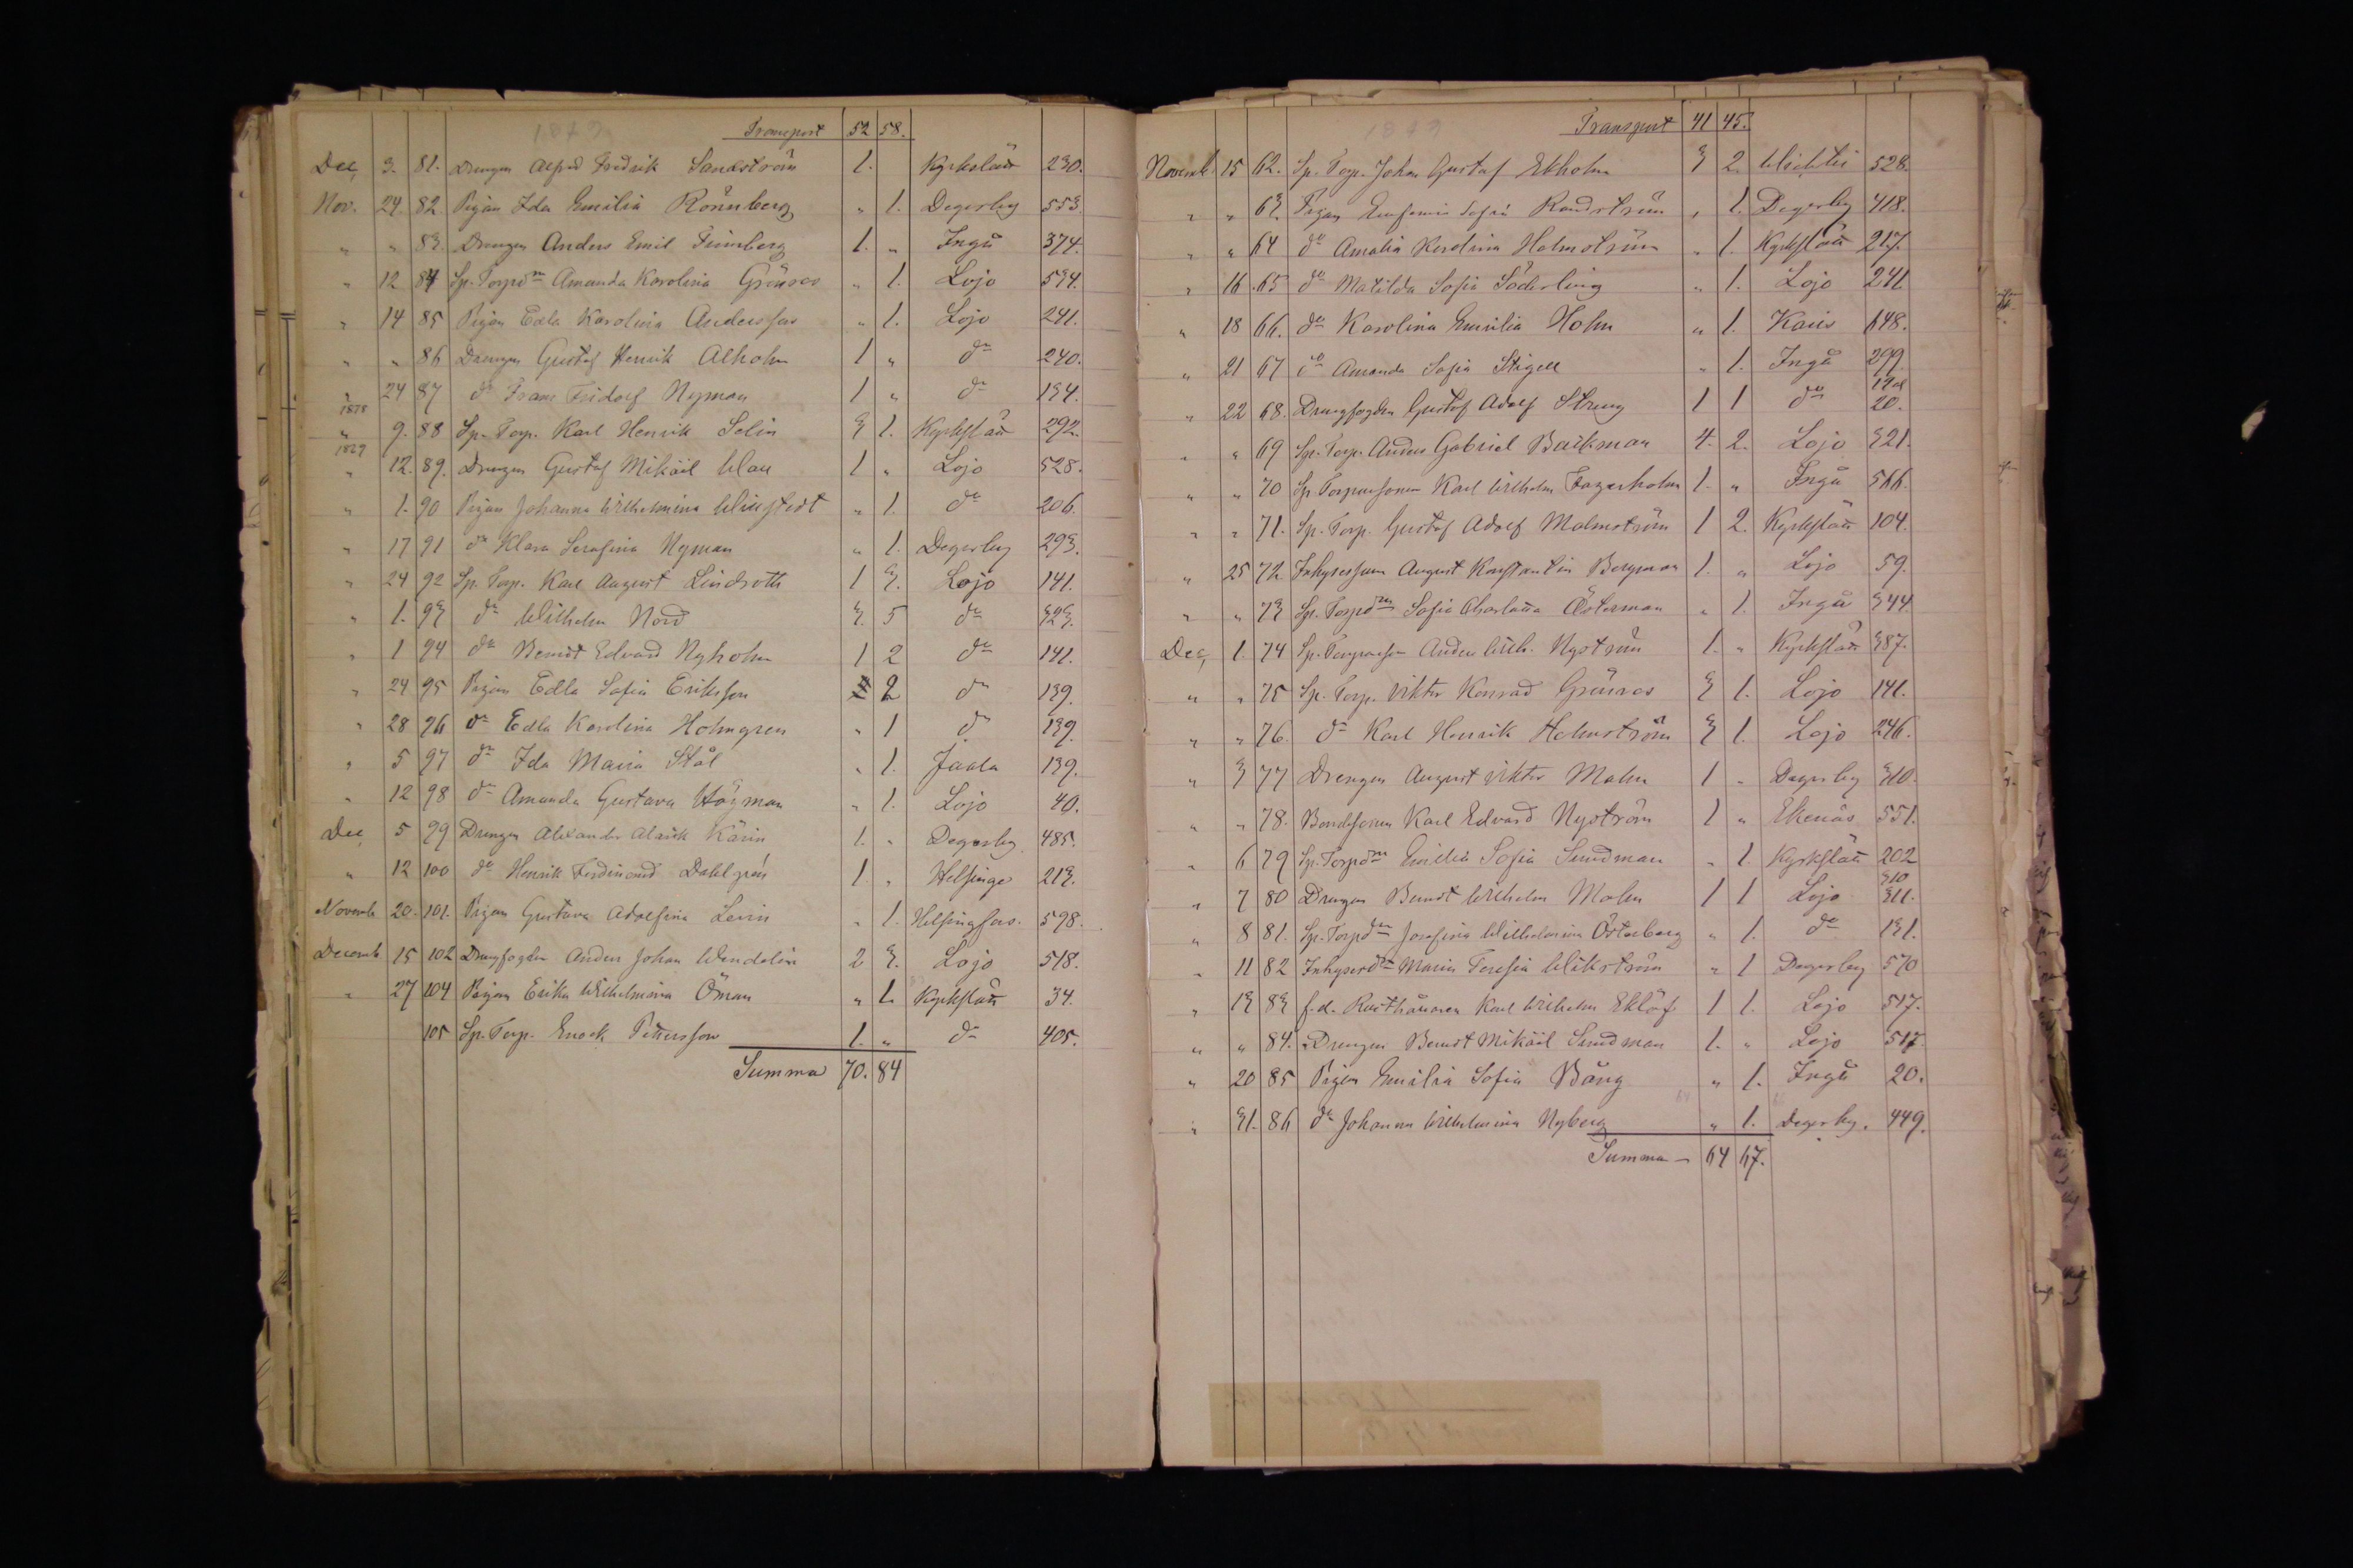 1879
Transport 52 58.
Dec, 3. 81. Drengen Alfred Fredrik Sandström 1. Kyrkslätt 230.
Nov. 24. 82 Pigan Ida Emilia Rönnberg " 1. Degerby 553.
" " 83. Drengen Anders Emil Grönberg 1. " Ingå 374.
" 12 84 Sp. Torpd:r Amanda Karolina Grönroos " 1. Lojo 534.
" 14 85 Pigan Edla Karolina Andersson " 1. Lojo 241.
" " 86 Drengen Gustaf Henrik Alholm 1 " d:o 240.
" 24 87 d:o Frans Fridolf Nyman 1 " d:o 134.
1878
" 9. 88 Sp. Torp. Karl Henrik Selin 3 1. Kyrkslätt 292.
1879
" 12. 89. Drengen Gustaf Mikäil 1 " Lojo 528.
" 1. 90 Pigan Johanna Wilhelmina " 1. d:o 206.
" 17 91 d:o Klara Serafina Nyman " 1. Degerby 293.
" 24 92 Sp. Torp. Karl August Lindroth 1 3. Lojo 141.
" 1. 93 d:o Wilhelm Nord 3. 5 d:o 323.
" 1 94 d:o Berndt Edvard Nyholm 1 2 d:o 141.
" 24 95 Pigan Edla Sofia Eriksson 2 d:o 139.
" 28 96 d:o Edla Karolina Holmgren " 1 d:o 139.
" 5 97 d:o Ida Maria Stål " 1. Jaala 139.
" 12 98 d:o Amanda Gustava Högman " 1. Lojo 40.
Dec, 5 99 Drengen Alexander Alarik Kärin 1. " Degerby 485.
" 12 100 d:o Henrik Ferdinand Dahlgren 1 " Helsinge 213.
Novemb. 20. 101. Pigan Gustava Adolfina Levin " 1. Helsingfors. 598.
Decemb. 15 102 Drengfogden Anders Johan Wendelin 2 3. Lojo 518.
" 27 104 Pigan Erika Wilhelmina Öman " 1. Kyrkslätt 34.
105 Sp. Torp. Enock Pettersson 1. " d:o 405.
Summa 70. 84
1879
Transport 41 45.
Novemb. 15 62. Sp. Torp. Johan Gustaf Ekholm 3 2. Wichtis 528.
" " 63. Pigan Eufemia Sofia Randström " 1. Degerby 418.
" " 64 d:o Amalia Karolina Holmström " 1. Kyrkslätt 217.
" 16 65 d:o Matilda Sofia Söderling " 1. Lojo 241.
" 18 66. d:o Karolina Emilia Holm " 1. Karis 148.
" 21 67 d:o Amanda Sofia Stigell " 1. Ingå 299.
" 22 68. Drengfogden Gustaf Adolf Streng 1 1 d:o 20.
" " 69 Sp. Torp. Anders Gabriel Backman 4. 2. Lojo 321.
" " 70 Sp. Torparsonen Karl Wilhelm Fagerholm 1. " Ingå 566.
" " 71. Sp. Torp. Gustaf Adolf Malmström 1 2. Kyrkslätt 104.
" 25 72 Inhysessonen August Konstantin Bergman 1. " Lojo 59.
" " 73 Sp. Torpd:r Sofia Charlotta Österman " 1. Ingå 344.
Dec, 1. 74 Sp. Torparson Anders Wilh. Nyström 1. " Kyrkslätt 387.
" " 75 Sp. Torp. Viktor Konrad Grönroos 3 1. Lojo 141.
" " 76. d:o Karl Henrik Holmström 3 1. Lojo 246.
" 3 77 Drengen August Viktor Malm 1 " Degerby 310.
" " 78. Bondsonen Karl Edvard Nyström 1 " Ekenäs 551.
" 6 79 Sp. Torpd:r Emilia Sofia Sundman " 1. Kyrkslätt 202
" 7 80 Drengen Berndt Wilhelm Malm 1 1 Lojo 310 311.
" 8 81. Sp. Torpd:r Josefina Wilhelmina Österberg " 1. d:o 131.
" 11 82 Inhyserd:r Maria Teresia Wikström " 1 Degerby 570
" 13 83 f.d. Rusthållaren Karl Wilhelm Eklöf 1 1. Lojo 517.
" " 84. Drengen Berndt Mikäil Sundman 1. " Lojo 517.
" 20 85 Pigan Emilia Sofia Bång " 1. Ingå 20.
" 31. 86 d:o Johanna Wilhelmina Nyberg " 1. Degerby. 449.
Summa 64 67.